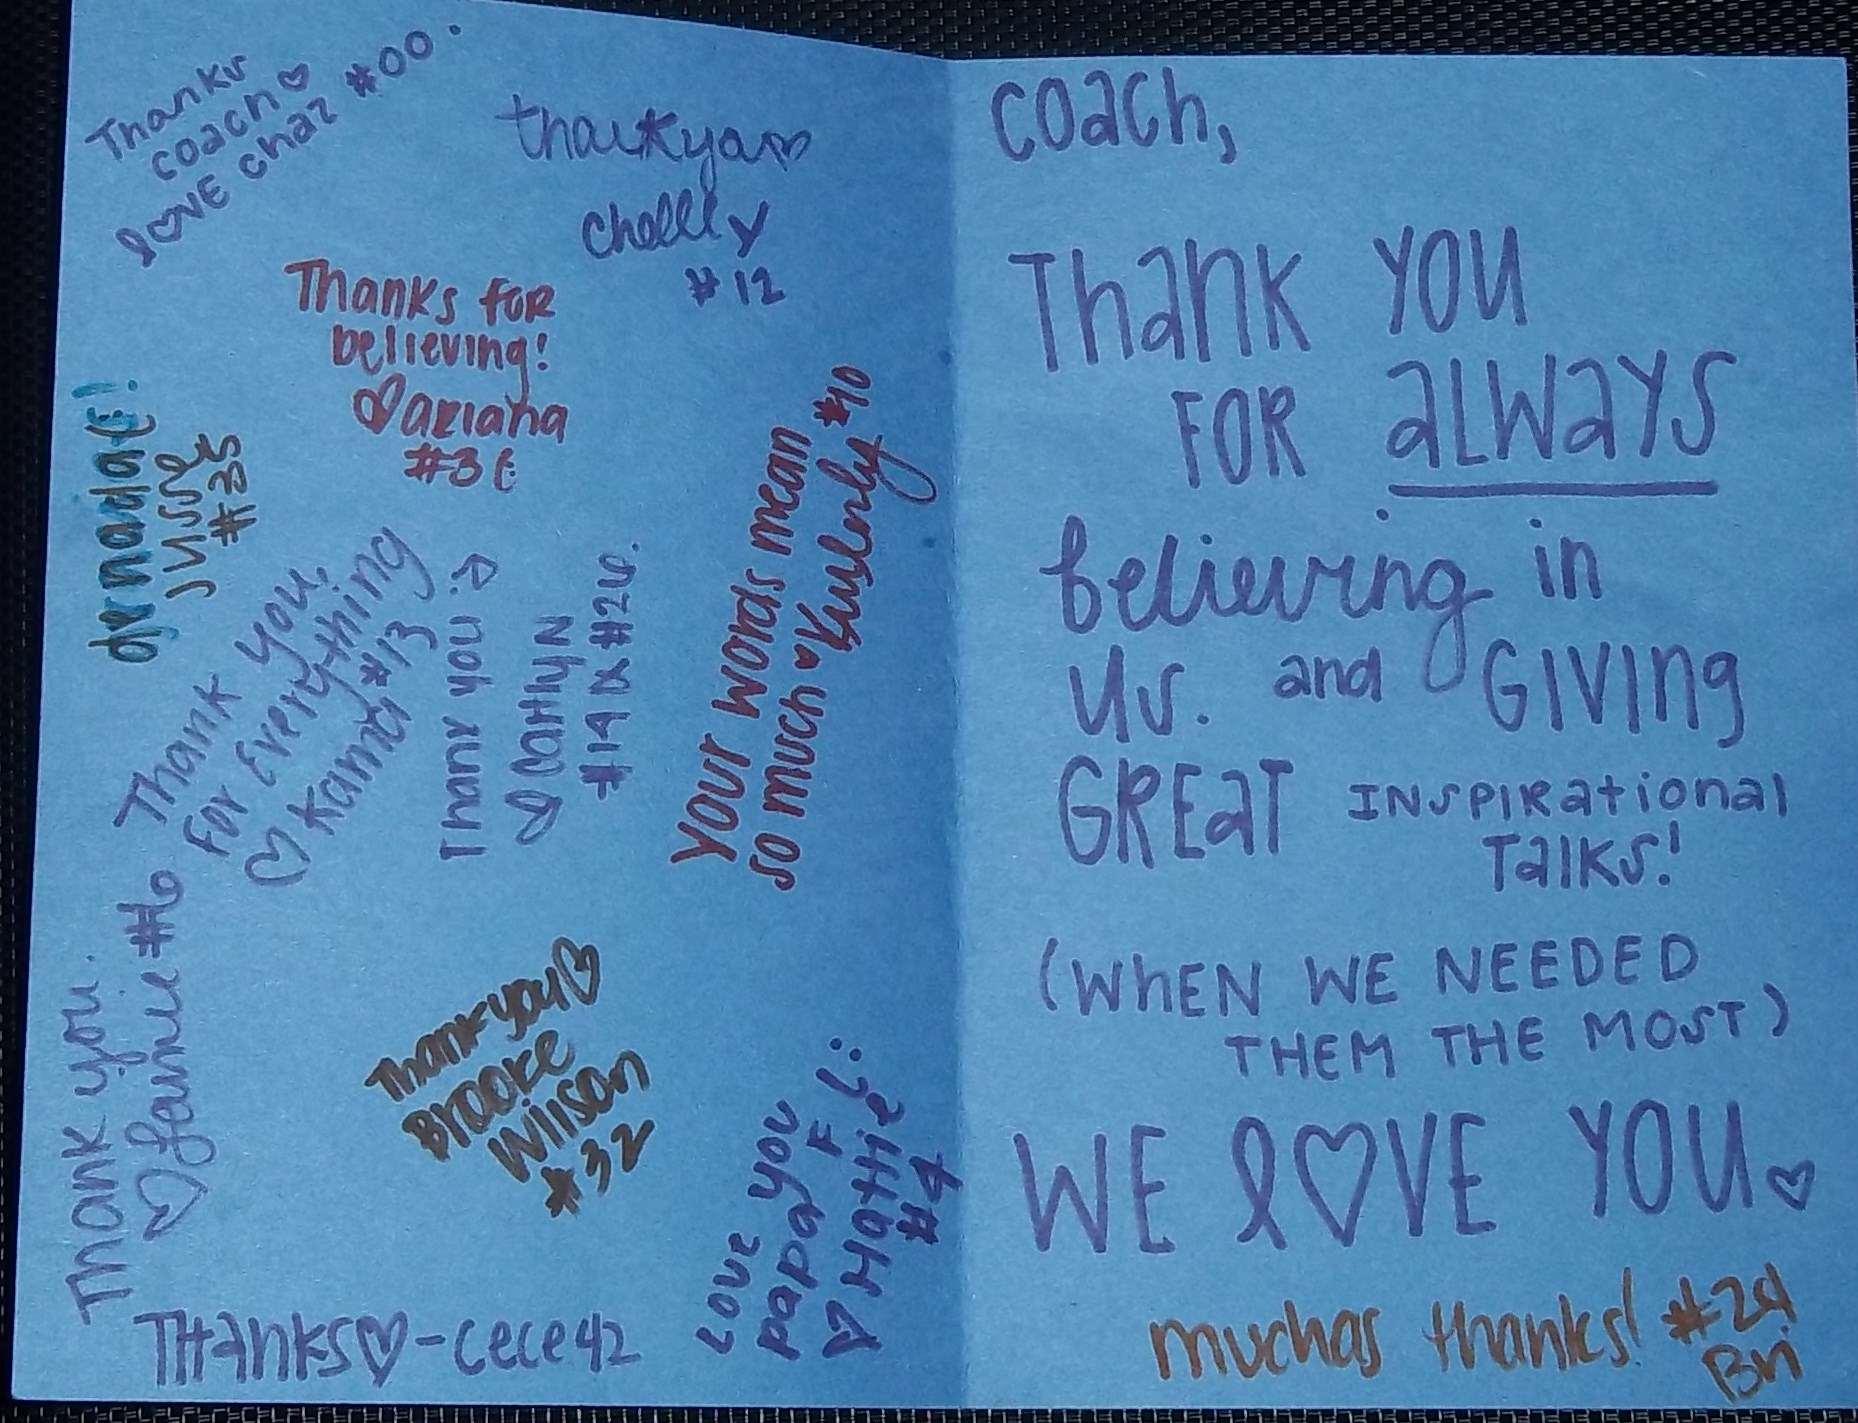 Thanks
coach
love chaz #00.
thankyou
Chelly
#12
Thanks for
believing!
ariana
#3
#25
Thank you,
for Everything
Kama #13
Thank you :)
Caitlyn
#19 &
Your words mean
so much
#10
Thank you.
Jamie #6
Thank you
Brooke
Wilson
#32
Love you
papa
F
Mattie
#4
THanks - cece 42
coach,
Thank you
FOR aLWays
believing in
us. and GIVIng
GREaT INspIRational
Talks!
(WhEN WE NEEDED
THEM THE MOST)
WE lOVE YOU
muchas thanks! #24
Bri